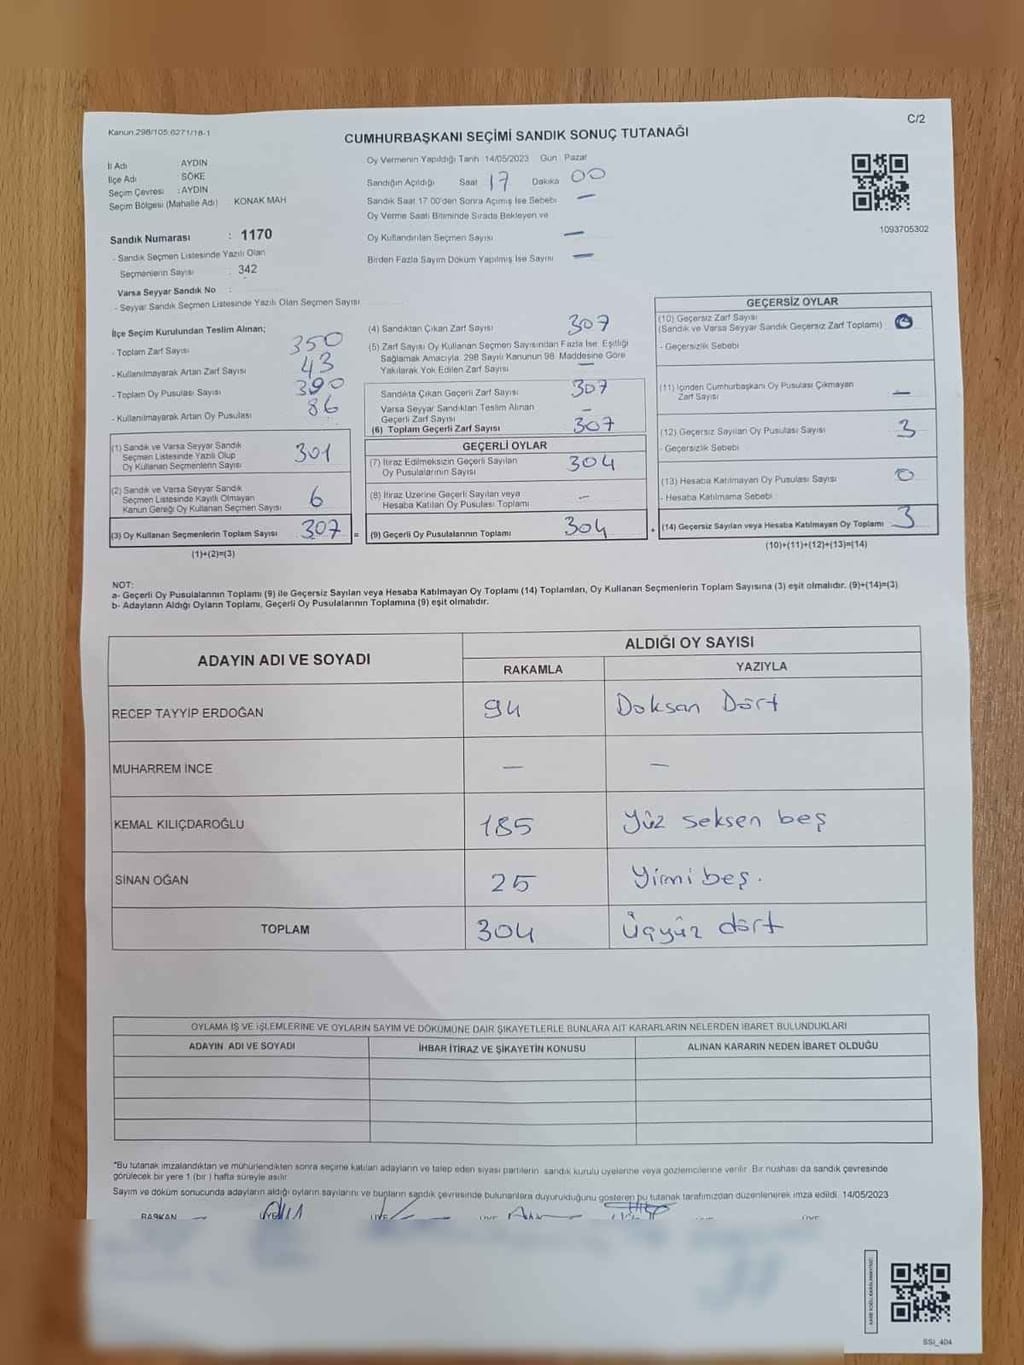 Kanun.298/105,6271/18-1
C/2
CUMHURBAŞKANI SEÇİMİ SANDIK SONUÇ TUTANAĞI
İl Adı AYDIN
İlçe Adı SÖKE
Seçim Çevresi : AYDIN
Seçim Bölgesi (Mahalle Adı) KONAK MAH
Oy Vermenin Yapıldığı Tarih 14/05/2023 Gün : Pazar
Sandığın Açıldığı Saat 17 Dakika 00
Sandık Saat 17.00'den Sonra Açımış İse Sebebi —
Oy Verme Saati Bitiminde Sırada Bekleyen ve
Oy Kullandırılan Seçmen Sayısı —
Birden Fazla Sayım Döküm Yapılmış İse Sayısı —
1093705302
Sandık Numarası : 1170
- Sandık Seçmen Listesinde Yazılı Olan
Seçmenlerin Sayısı : 342
Varsa Seyyar Sandık No :
- Seyyar Sandık Seçmen Listesinde Yazılı Olan Seçmen Sayısı
İlçe Seçim Kurulundan Teslim Alınan;
- Toplam Zarf Sayısı 350
- Kullanılmayarak Artan Zarf Sayısı 43
- Toplam Oy Pusulası Sayısı 390
- Kullanılmayarak Artan Oy Pusulası 86
(1) Sandık ve Varsa Seyyar Sandık
Seçmen Listesinde Yazılı Olup
Oy Kullanan Seçmenlerin Sayısı 301
(2) Sandık ve Varsa Seyyar Sandık
Seçmen Listesinde Kayıtlı Olmayan
Kanun Gereği Oy Kullanan Seçmen Sayısı 6
(3) Oy Kullanan Seçmenlerin Toplam Sayısı 307 =
(1)+(2)=(3)
(4) Sandıktan Çıkan Zarf Sayısı 307
(5) Zarf Sayısı Oy Kullanan Seçmen Sayısından Fazla İse, Eşitliği
Sağlamak Amacıyla, 298 Sayılı Kanunun 98. Maddesine Göre
Yakılarak Yok Edilen Zarf Sayısı —
Sandıkta Çıkan Geçerli Zarf Sayısı 307
Varsa Seyyar Sandıktan Teslim Alınan
Geçerli Zarf Sayısı —
(6) Toplam Geçerli Zarf Sayısı 307
GEÇERLİ OYLAR
(7) İtiraz Edilmeksizin Geçerli Sayılan
Oy Pusulalarının Sayısı 304
(8) İtiraz Üzerine Geçerli Sayılan veya
Hesaba Katılan Oy Pusulası Toplamı —
(9) Geçerli Oy Pusulalarının Toplamı 304 +
GEÇERSİZ OYLAR
(10) Geçersiz Zarf Sayısı
(Sandık ve Varsa Seyyar Sandık Geçersiz Zarf Toplamı)
- Geçersizlik Sebebi
(11) İçinden Cumhurbaşkanı Oy Pusulası Çıkmayan
Zarf Sayısı —
(12) Geçersiz Sayılan Oy Pusulası Sayısı 3
- Geçersizlik Sebebi
(13) Hesaba Katılmayan Oy Pusulası Sayısı 0
- Hesaba Katılmama Sebebi
(14) Geçersiz Sayılan veya Hesaba Katılmayan Oy Toplamı 3
(10)+(11)+(12)+(13)=(14)
NOT:
a- Geçerli Oy Pusulalarının Toplamı (9) ile Geçersiz Sayılan veya Hesaba Katılmayan Oy Toplamı (14) Toplamları, Oy Kullanan Seçmenlerin Toplam Sayısına (3) eşit olmalıdır. (9)+(14)=(3)
b- Adayların Aldığı Oyların Toplamı, Geçerli Oy Pusulalarının Toplamına (9) eşit olmalıdır.
ADAYIN ADI VE SOYADI
ALDIĞI OY SAYISI
RAKAMLA YAZIYLA
RECEP TAYYİP ERDOĞAN 94 Doksan Dört
MUHARREM İNCE — —
KEMAL KILIÇDAROĞLU 185 Yüz seksen beş
SİNAN OĞAN 25 Yirmi beş.
TOPLAM 304 Üçyüz dört
OYLAMA İŞ VE İŞLEMLERİNE VE OYLARIN SAYIM VE DÖKÜMÜNE DAİR ŞİKAYETLERLE BUNLARA AİT KARARLARIN NELERDEN İBARET BULUNDUKLARI
ADAYIN ADI VE SOYADI İHBAR İTİRAZ VE ŞİKAYETİN KONUSU ALINAN KARARIN NEDEN İBARET OLDUĞU
*Bu tutanak imzalandıktan ve mühürlendikten sonra seçime katılan adayların ve talep eden siyasi partilerin sandık kurulu üyelerine veya gözlemcilerine verilir. Bir nüshası da sandık çevresinde
görülecek bir yere 1 (bir) hafta süreyle asılır.
Sayım ve döküm sonucunda adayların aldığı oyların sayılarını ve bunların sandık çevresinde bulunanlara duyurulduğunu gösteren bu tutanak tarafımızdan düzenlenerek imza edildi. 14/05/2023
BAŞKAN ÜYE ÜYE ÜYE ÜYE ÜYE
SSI_404